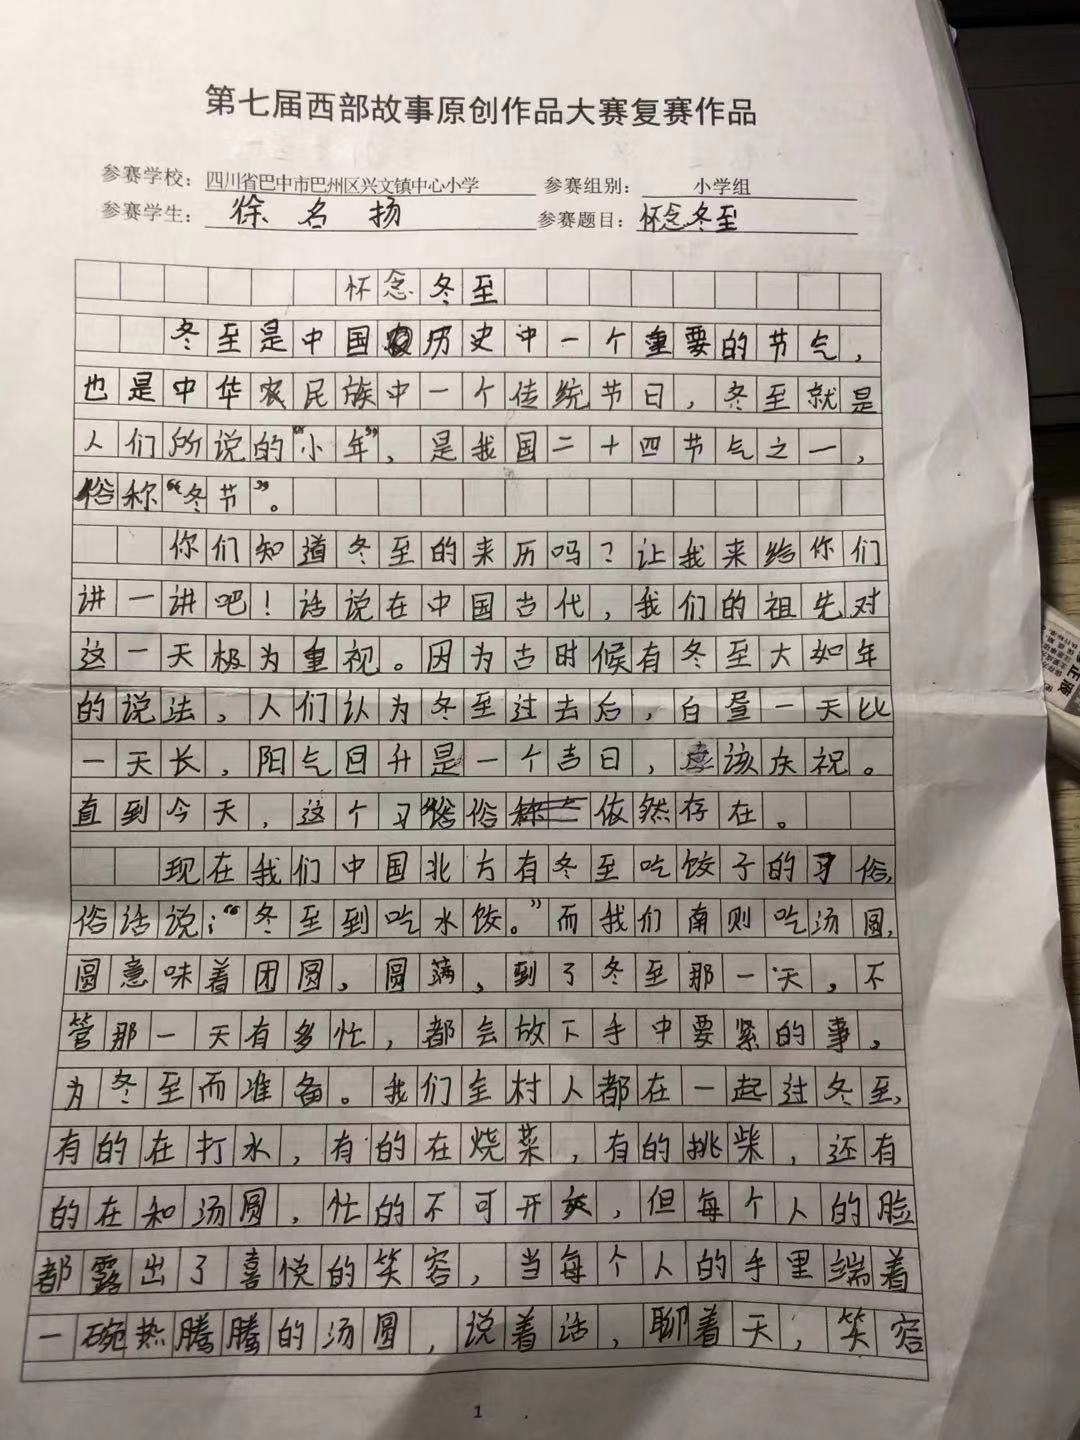 第七届西部故事原创作品大赛复赛作品
参赛学校：四川省巴中市巴州区兴文镇中心小学 参赛组别：小学组
参赛学生：徐名扬 参赛题目：怀念冬至
怀念冬至
冬至是中国历史中一个重要的节气，
也是中华农民族中一个传统节日，冬至就是
人们所说的“小年”，是我国二十四节气之一，
俗称“冬节”。
你们知道冬至的来历吗？让我来给你们
讲一讲吧！话说在中国古代，我们的祖先对
这一天极为重视。因为古时候有冬至大如年
的说法，人们认为冬至过去后，白昼一天比
一天长，阳气回升是一个吉日，该庆祝。
直到今天，这个习俗依然存在。
现在我们中国北方有冬至吃饺子的习俗，
俗话说：“冬至到吃水饺。”而我们南则吃汤圆，
圆意味着团圆，圆满，到了冬至那一天，不
管那一天有多忙，都会放下手中要紧的事，
为冬至而准备。我们全村人都在一起过冬至，
有的在打水，有的在烧菜，有的挑柴，还有
的在和汤圆，忙的不可开交，但每个人的脸
都露出了喜悦的笑容，当每个人的手里端着
一碗热腾腾的汤圆，说着话，聊着天，笑容
1